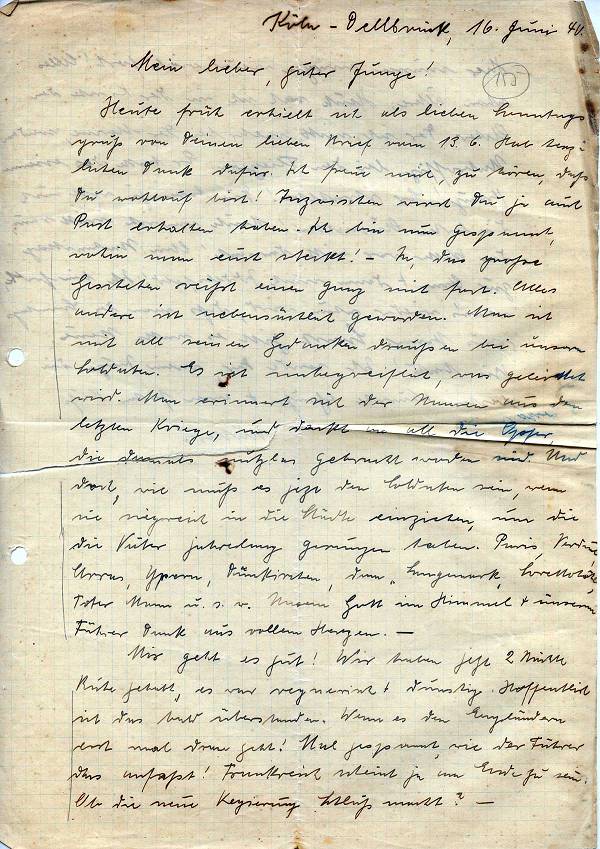 Köln-Dellbrück, 16. Juni 40.
155
Mein lieber, guter Junge!
Heute früh erhielt ich als lieben Sonntags
gruß von Deinen lieben Brief vom 13.6. Hab herz
lichen Dank dafür. Ich freue mich, zu hören, daß
Du wohlauf bist! Inzwischen wirst Du ja auch
Post erhalten haben. Ich bin nun gespannt,
wohin man euch steckt! – Ja, das große
Geschehen reißt einen ganz mit fort. Alles
andere ist nebensächlich geworden. Man ist
mit all seinen Gedanken draußen bei unsern
Soldaten. Es ist unbegreiflich, was geleistet
wird. Man erinnert sich der Namen aus dem
letzten Kriege, und denkt an all die Opfer,
die damals nutzlos gebracht worden sind. Und
doch, wie muß es jetzt den Soldaten sein, wenn
sie siegreich in die Städte einziehen, um die
die Väter jahrelang gerungen haben. Paris, Verdun,
Arras, Ypern, Dünkirchen, dann Langemark, Lorettohöhe,
Toter Mann u.s.w. Gott im Himmel + unserem
Führer Dank aus vollem Herzen. —
Mir geht es gut! Wir haben jetzt 2 Nächte
Ruhe gehabt, es war regnerisch + dunstig. Hoffentlich
ist das bald überstanden. Wenn es den Engländern
erst mal dran geht! Mal gespannt, wie der Führer
das anfaßt! Frankreich scheint ja am Ende zu sein.
Ob die neue Regierung Schluß macht? —